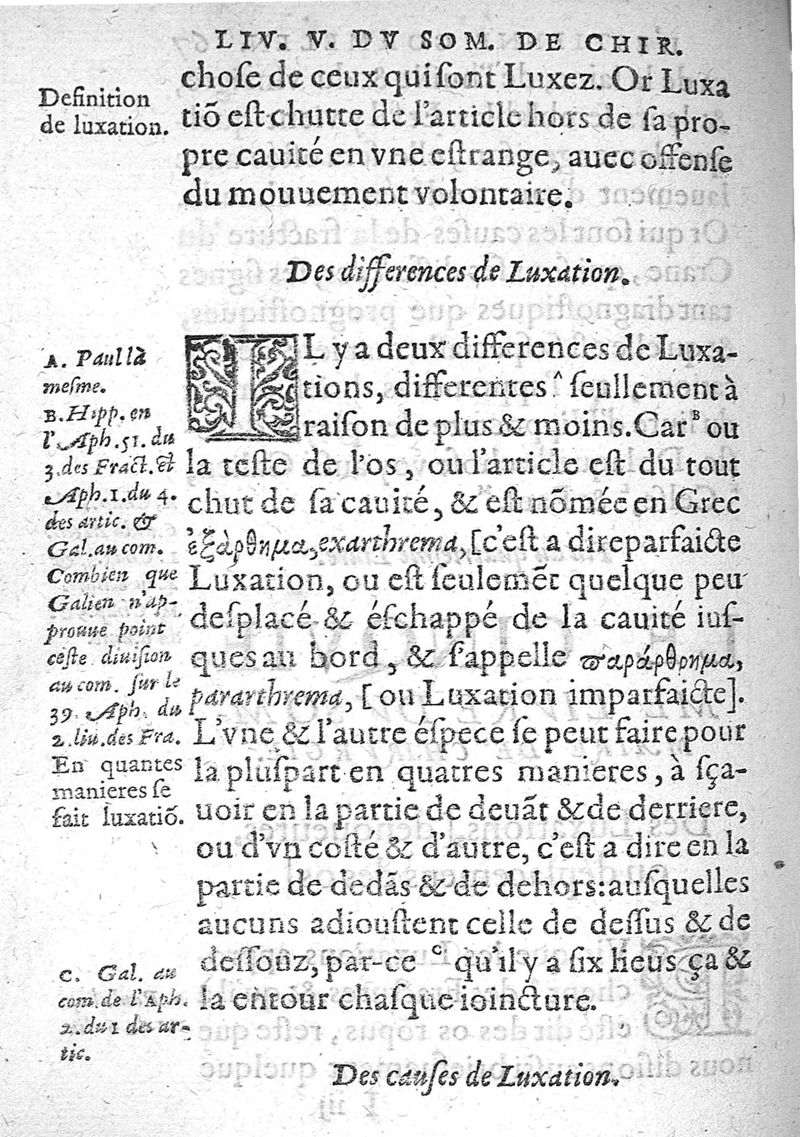 LIV. V. DV SOM. DE CHIR.
Definition
de luxation.
choſe de ceux qui ſont Luxez. Or Luxa
tiõ eſt chutte de l'article hors de ſa pro-
pre cauité en vne eſtrange, auec offenſe
du mouuement volontaire.
Des differences de Luxation.
A. Paul là
meſme.
B. Hipp. en
l'Aph. 51. du
3. des Fract. et
Aph. 1. du 4.
des artic. &
Gal. au com.
Combien que
Galien n'ap-
prouue point
ceſte diuiſion
au com. ſur le
39. Aph. du
2. liu. des Fra.
En quantes
manieres ſe
fait luxatiõ.
IL y a deux differences de Luxa-
tions, differentes ᴬ ſeullement à
raiſon de plus & moins. Car ᴮ ou
la teſte de l'os, ou l'article eſt du tout
chut de ſa cauité, & eſt nõmée en Grec
ἐξάρθημα, exarthrema, [c'eſt a dire parfaicte
Luxation, ou eſt ſeulemẽt quelque peu
deſplacé & éſchappé de la cauité iuſ-
ques au bord, & s'appelle ϖαράρθρημα,
pararthrema, [ou Luxation imparfaicte].
L'vne & l'autre éſpece ſe peut faire pour
la pluſpart en quatres manieres, à ſça-
uoir en la partie de deuãt & de derriere,
ou d'vn coſté & d'autre, c'eſt a dire en la
partie de dedãs & de dehors: auſquelles
aucuns adiouſtent celle de deſſus & de
deſſouz, par-ce ᶜ qu'il y a ſix lieus ça &
la entour chaſque ioincture.
C. Gal. au
com. de l'Aph.
2. du 1 des ar-
tic.
Des cauſes de Luxation.